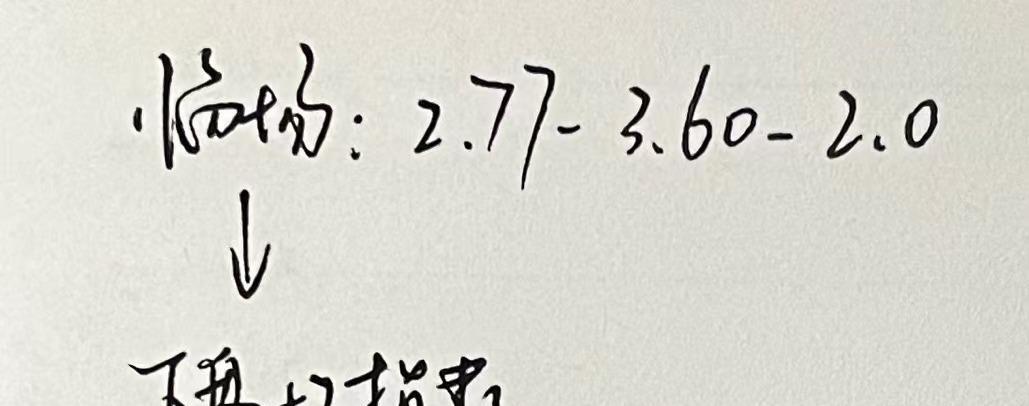 临场: 2.77-3.60-2.0
↓
下盘